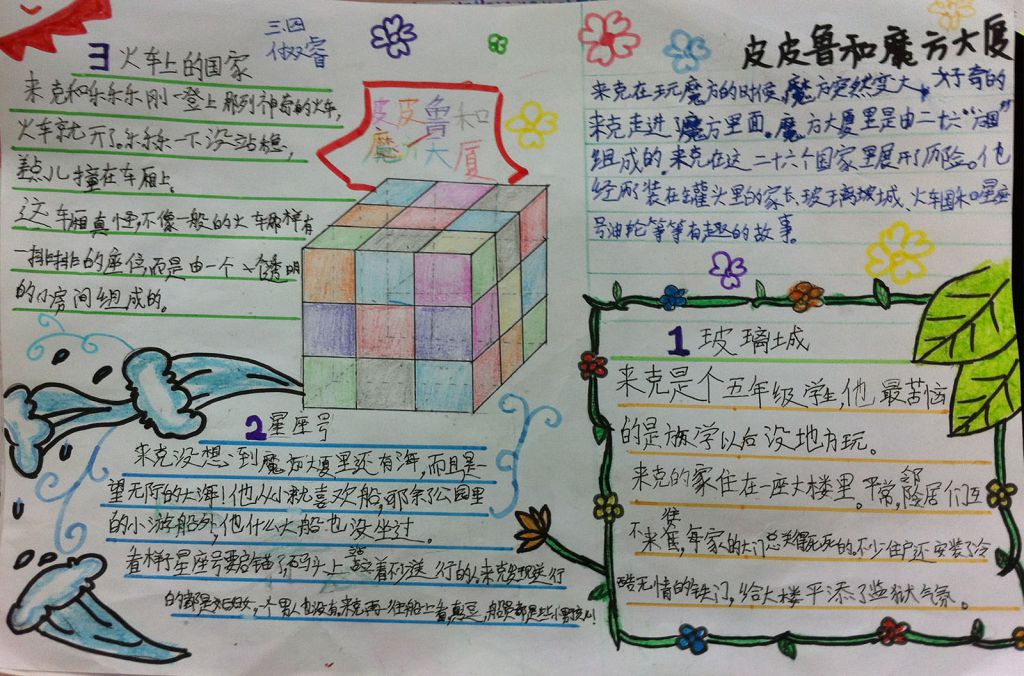 三、四
皮皮鲁和魔方大厦
3 火车上的国家
来克和乐乐乐刚一登上那列神奇的火车,
火车就开了。乐乐乐一下没站稳,
差点儿撞在车厢上。
这车厢真怪,不像一般的火车那样有
一排排的座位,而是由一个个透明
的小房间组成的。
皮皮鲁和
魔方大厦
来克在玩魔方的时候,魔方突然变大,好奇的
来克走进了魔方里面。魔方大厦里是由二十六“方国”
组成的,来克在这二十六个国家里展开了历险。他
经历装在罐头里的家长、玻璃城、火车国和星座
号油轮等等有趣的故事。
1 玻璃城
来克是个五年级学生,他最苦恼
的是放学以后没地方玩。
来克的家住在一座大楼里。平常,邻居们互
不来往,每家的大门总关得死死的,不少住户还安装了冷
酷无情的铁门,给大楼平添了监狱气氛。
2 星座号
来克没想到魔方大厦里还有海,而且是一
望无际的大海!他从小就喜欢船,可除了公园里
的小游船外,他什么大船也没坐过。
看样子星座号要启锚了,码头上站着不少送行的人,来克发现送行
的都是妇女,一个男人也没有,来克再往船上看,真逗,船员都是些小男孩儿!